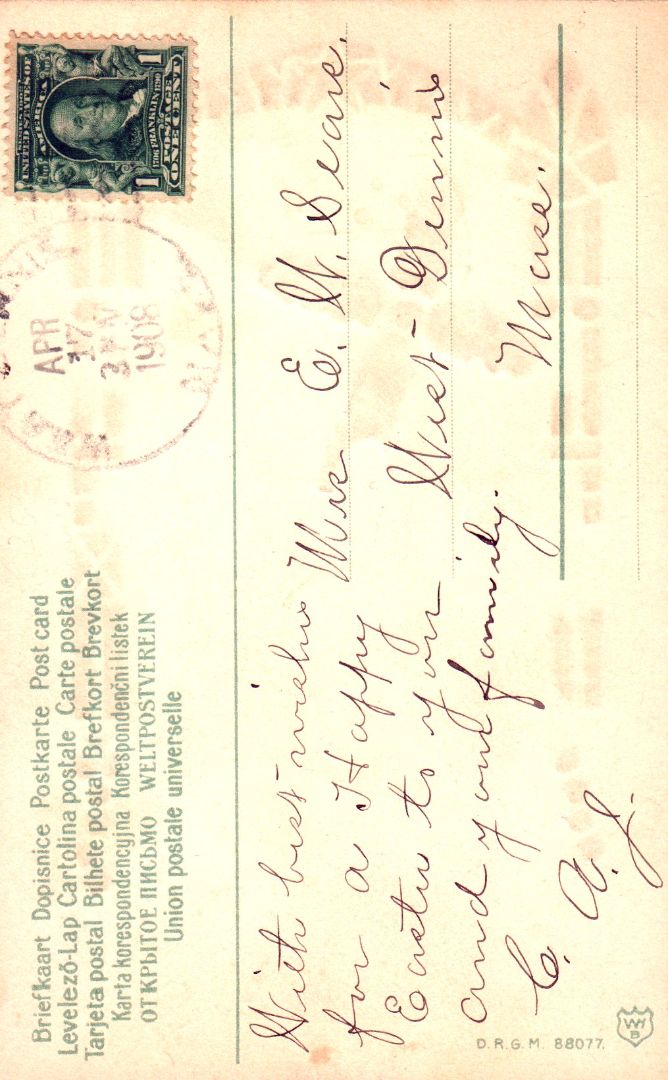 Briefkaart Dopisnice Postkarte Post card
Levelező-Lap Cartolina postale Carte postale
Tarjeta postal Bilhete postal Brefkort Brevkort
Karta korespondencyjna Korespondenční listek
ОТКРЫТОЕ ПИСЬМО WELTPOSTVEREIN
Union postale universelle
UNITED STATES OF
AMERICA
FRANKLIN
POSTAGE
1 ONE CENT 1
APR
17
3 PM
1908
MASS
With best wishes
for a Happy
Easter to you
and your family.
C. A. J.
Mrs E. W. Sears.
West-Dennis
Mass.
D.R.G.M. 88077.
WH
B